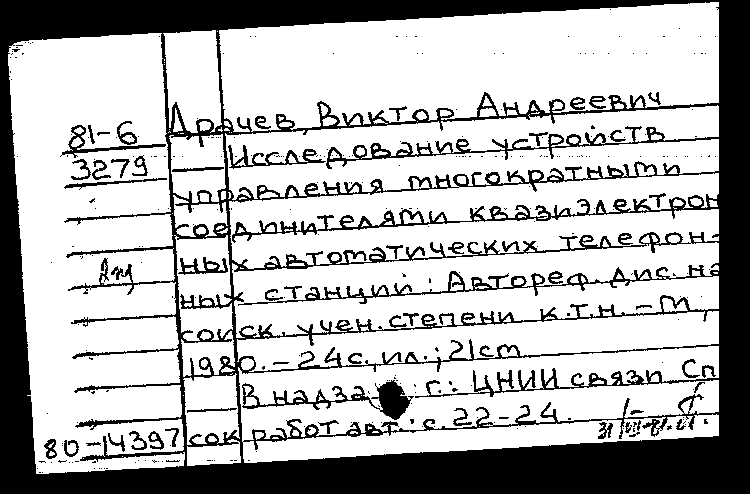 81-6
3279
Драчев, Виктор Андреевич
Исследование устройств
управления многократными
соединителями квазиэлектрон
ных автоматических телефон-
ных станций: Автореф. дис. на
соиск. учен. степени к.т.н. - М,
1980. - 24 с., ил.; 21 см
В надзаг.: ЦНИИ связи Сп
сок работ авт.: с. 22-24.
80-14397